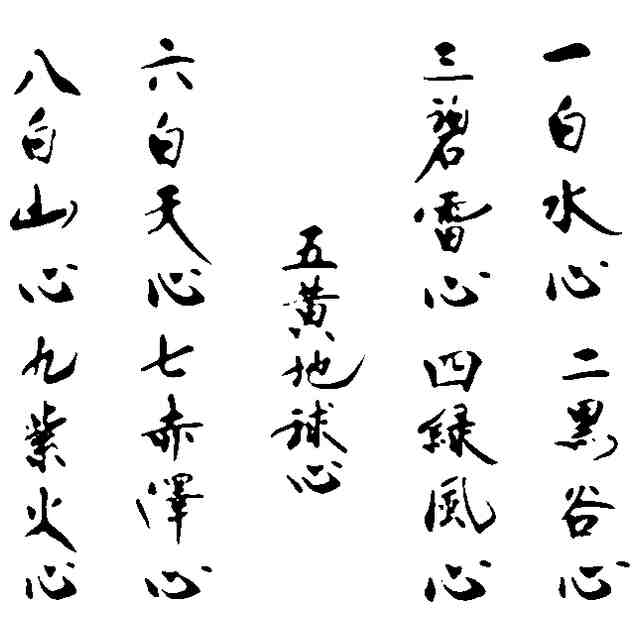 一白水心 二黒谷心
三碧雷心 四緑風心
五黄地球心
六白天心 七赤澤心
八白山心 九紫火心